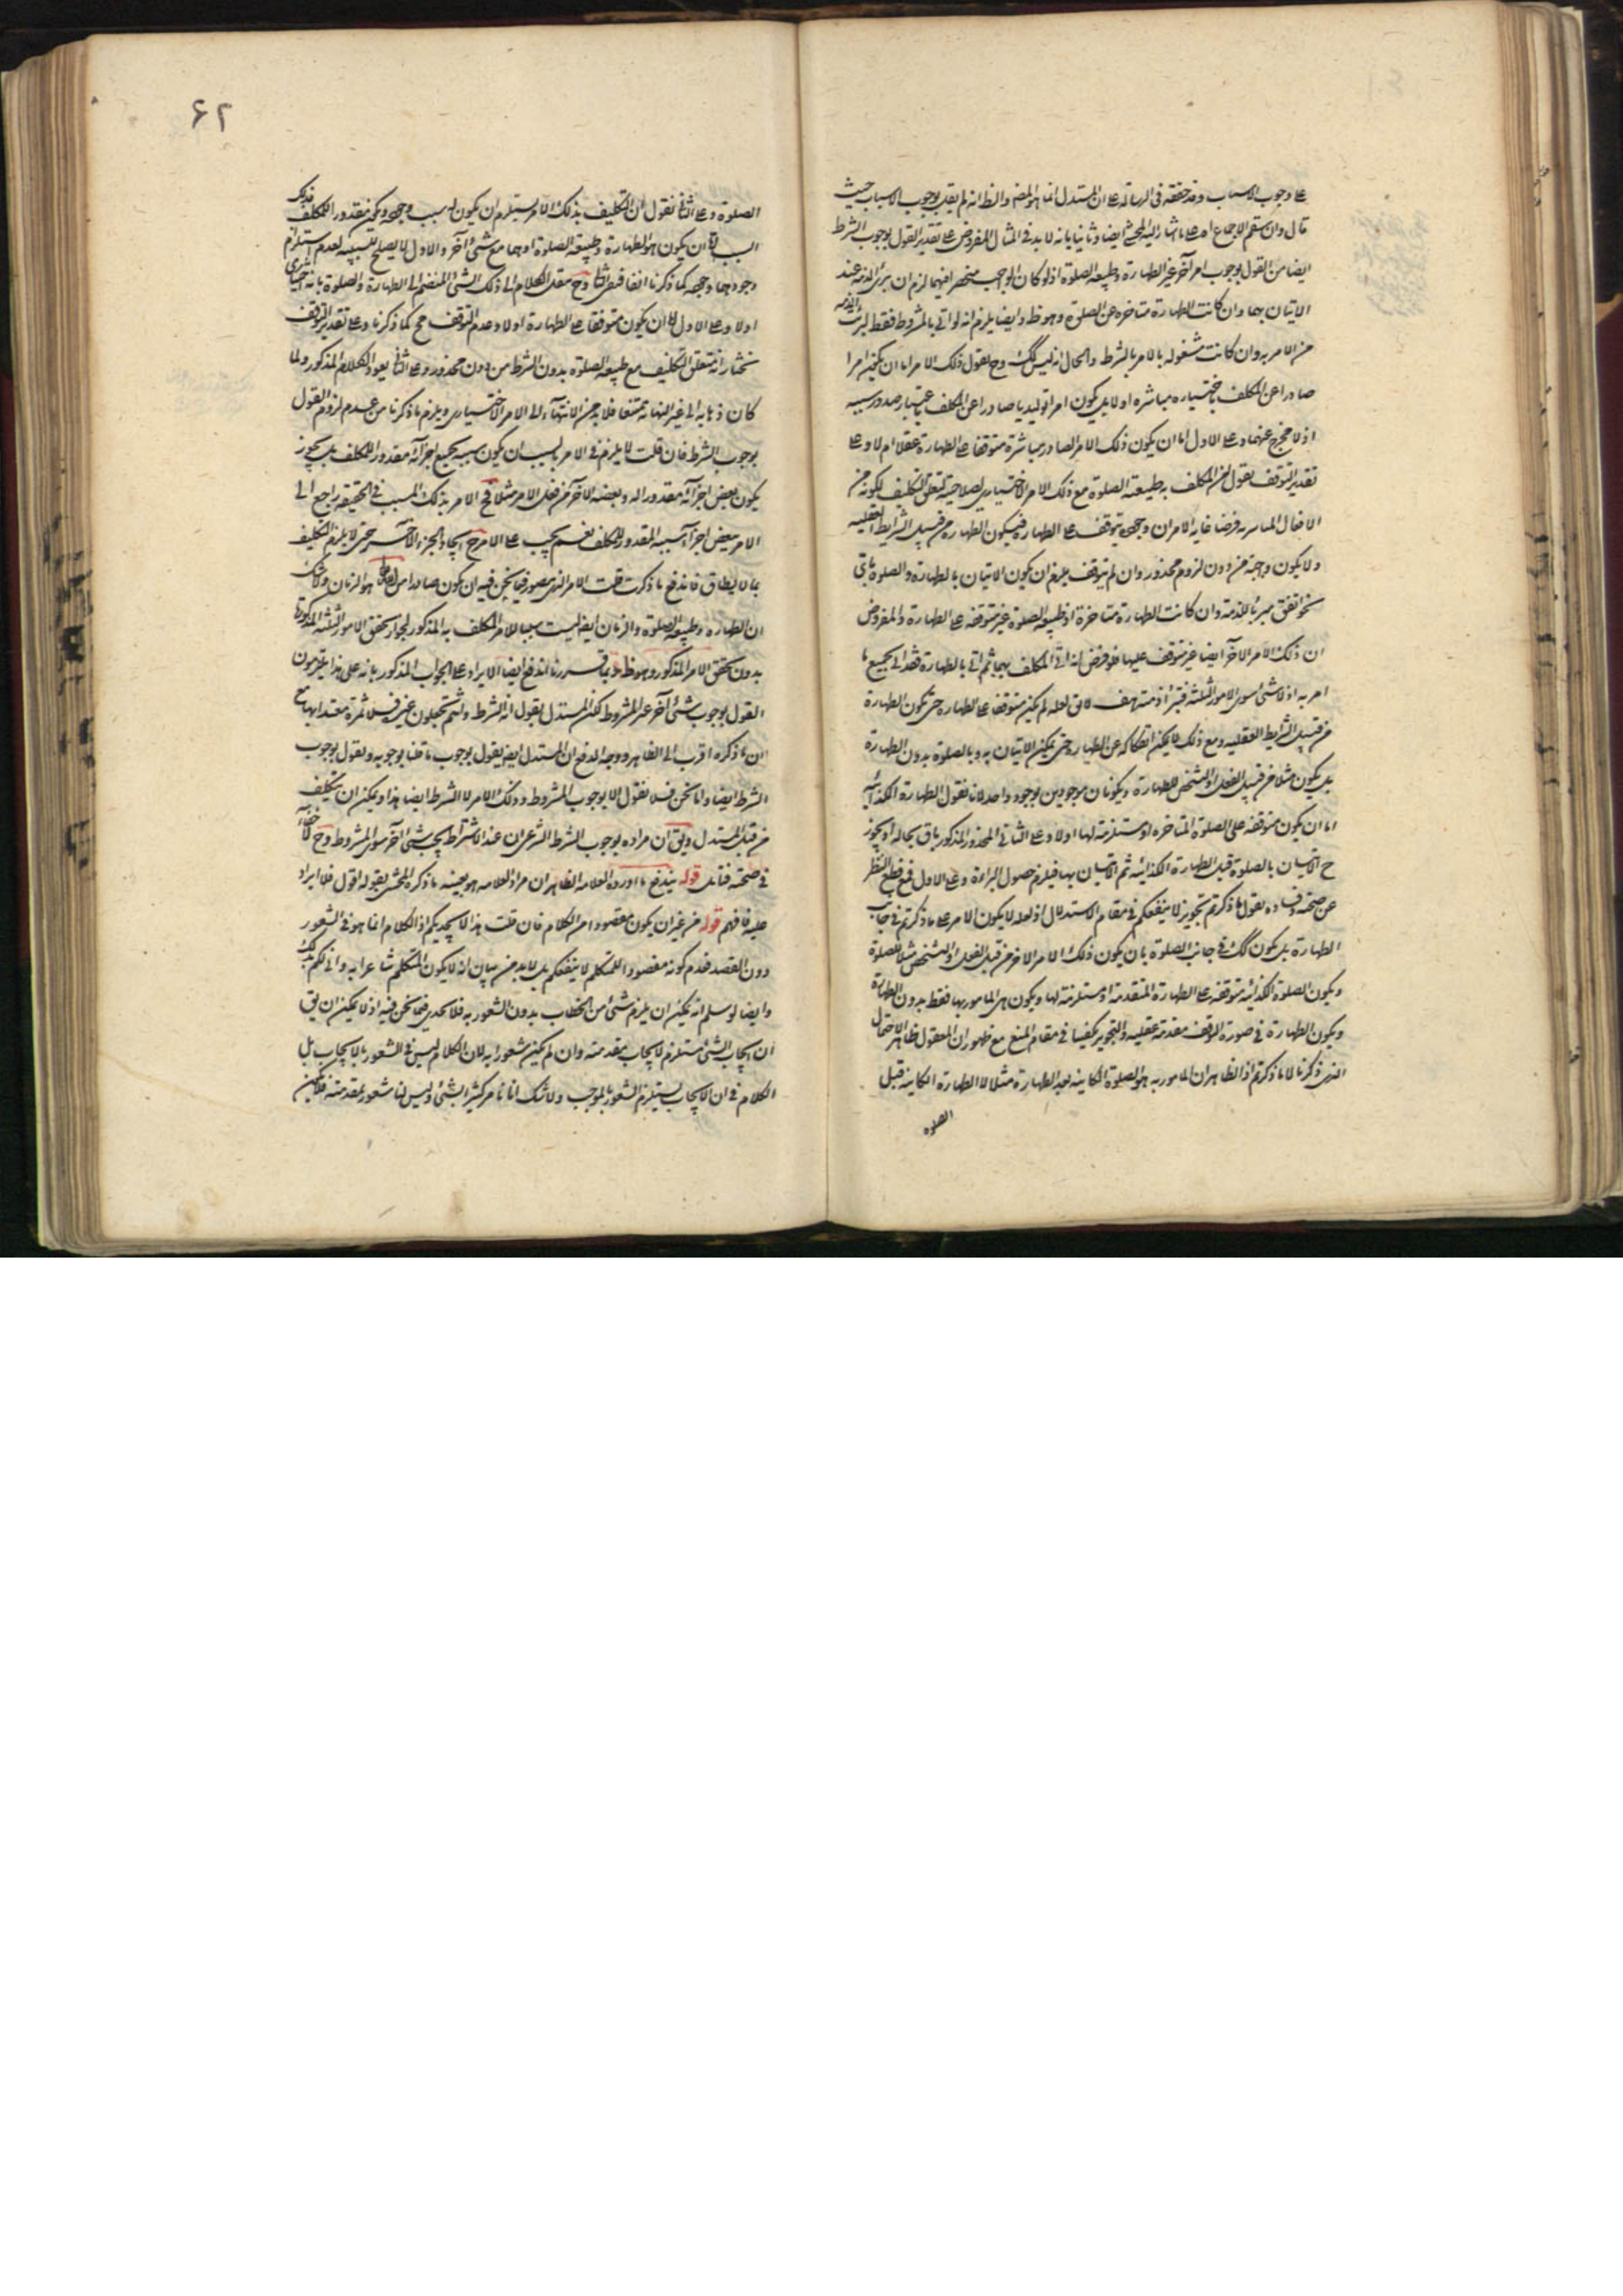 على وجوب الاسباب وقد حققه في الرسالة على ان المستدل انما هو المض والظ انه لم يقل بوجوب الاسباب حيث
قال وان سقم الاجماع اه على ما اشار اليه المحشي ايضا وثانيا بانه لا بد في المثال المفروض على تقدير القول بوجوب الشرط
ايضا من القول بوجوب امر آخر غير الطهارة وطبيعة الصلوة اذ لو كان الواجب منحصرا فيهما لزم ان يبرئ الذمة عند
الاتيان بهما وان كانت الطهارة متاخرة عن الصلوة وهو ظ وايضا يلزم انه لو اتى بالمشروط فقط لبرئت الذمة
من الامر به وان كانت مشغولة بالامر بالشرط والحال انه ليس كك وح نقول ذلك الامر اما ان يكون امرا
صادرا عن المكلف باختياره مباشرة او لا بل يكون امرا توليديا صادرا عن المكلف باعتبار صدور سببه
اذ لا مخرج عنهما وعلى الاول اما ان يكون ذلك الامر الصادر مباشرة متوقفا على الطهارة عقلا ام لا وعلى
تقدير التوقف نقول المكلف به طبيعة الصلوة مع ذلك الامر الاختياري لصلاحيته لتعلق التكليف لكونه من
الافعال المباشرية فرضا غاية الامر ان وجوده يتوقف على الطهارة فيكون الطهارة من قبيل الشرايط العقلية
ولا يكون واجبة من دون لزوم محذور وان لم يتوقف يلزم ان يكون الاتيان بالطهارة والصلوة باي
نحو اتفق مبرئا للذمة وان كانت الطهارة متاخرة اذ طبيعة الصلوة غير متوقفة على الطهارة والمفروض
ان ذلك الامر الآخر ايضا غير متوقف عليها فلو فرض انه اتى المكلف بهما ثم اتى بالطهارة فقد اتى بجميع ما
امر به اذ لا شئ سوى الامور الثلثة فيبرأ ذمته هف لا يق لعله لم يكن متوقفا على الطهارة حتى يكون الطهارة
من قبيل الشرايط العقلية ومع ذلك لا يمكن انفكاكه عن الطهارة حتى يمكن الاتيان به وبالصلوة بدون الطهارة
بل يكون مثلا من قبيل الفصل او التشخص للطهارة ويكونان موجودين بوجود واحد لانا نقول الطهارة الكذائية
اما ان يكون متوقفة على الصلوة المتاخرة او مستلزمة لها اولا وعلى الثاني المحذور المذكور باق بحاله اذ يجوز
ح الاتيان بالصلوة قبل الطهارة الكذائية ثم الاتيان بها فيلزم حصول البراءة وعلى الاول فمع قطع النظر
عن صحته وفساده نقول ما ذكرتم تجويز لا ينفعكم في مقام الاستدلال اذ لعله لا يكون الامر على ما ذكرتم في جانب
الطهارة بل يكون كك في جانب الصلوة بان يكون ذلك الامر الآخر من قبيل الفصل او التشخص مثلا للصلوة
ويكون الصلوة الكذائية متوقفة على الطهارة المتقدمة او مستلزمة لها ويكون هي المامور بها فقط بدون الطهارة
ويكون الطهارة في صورة التوقف مقدمة عقلية والتجويز يكفينا في مقام المنع مع ظهور ان المعقول ظاهرا الاحتمال
الذي ذكرنا لا ما ذكرتم اذ الظاهر ان المامور به هو الصلوة الكاينة بعد الطهارة مثلا لا الطهارة الكاينة قبل
الصلوة
۶۲
الصلوة وعلى الثاني نقول ان التكليف بذلك الامر يستلزم ان يكون له سبب وجوده ويكون مقدورا للمكلف فذلك
السبب اما ان يكون هو الطهارة وطبيعة الصلوة او هما مع شئ آخر والاول لا يصلح للسببية لعدم استلزام
وجودهما وجوده كما ذكرنا انفا فبقي الثاني وح ننقل الكلام الى ذلك الشئ المنضم الى الطهارة والصلوة بانه اختياري
اولا وعلى الاول اما ان يكون متوقفا على الطهارة اولا وعدم التوقف مح كما ذكرنا وعلى تقدير التوقف
نختار انه متعلق التكليف مع طبيعة الصلوة بدون الشرط من دون محذور وعلى الثاني يعود الكلام المذكور ولما
كان ذهابه الى غير النهاية ممتنعا فلا بد من الانتهاء الى الامر الاختياري ويلزم ما ذكرنا من عدم لزوم القول
بوجوب الشرط فان قلت لا يلزم في الامر بالمسبب ان يكون سببه بجميع اجزائه مقدورا للمكلف بل يجوز
يكون بعض اجزائه مقدورا له وبعضه الآخر من فعل الامر مثلا فح الامر بذلك المسبب في الحقيقة راجع الى
الامر ببعض اجزاء سببه المقدور للمكلف نعم يجب على الامر ح ايجاد الجزء الآخر حتى لا يلزم التكليف
بما لا يطاق فاندفع ما ذكرت قلت الامر الذي يتصور فيما نحن فيه ان يكون صادرا من هو الزمان ولا شك
ان الطهارة وطبيعة الصلوة والزمان ايضا ليست سببا للامر المكلف به المذكور لجواز تحقق الامور الثلثة المذكورة
بدون تحقق الامر المذكور وهو ظ وبما قررنا اندفع ايضا الايراد على الجواب المذكور بانه على هذا يلتزمون
القول بوجوب شئ آخر غير المشروط لكن المستدل يقول انه الشرط وانتم تجعلون غيره فلا ثمرة معتدا بها مع
ان ما ذكره اقرب الى الظاهر ووجه الدفع ان المستدل ايضا يقول بوجوب ما قلنا بوجوبه ونقول بوجوب
الشرط ايضا واما نحن فلا نقول الا بوجوب المشروط وذلك الامر لا الشرط ايضا هذا ويمكن ان يتكلف
من قبل المستدل ويق ان مراده بوجوب الشرط الشرعي ان عند الاشتراط يجب شئ آخر سوى المشروط وح لا خفاء
في صحته فتامل قوله يندفع ما اورده العلامة الظاهر ان مراد العلامة هو بعينه ما ذكره المحشي بقوله اقول فلا ايراد
عليه فافهم قوله من غير ان يكون مقصودا من الكلام فان قلت هذا لا يجديكم اذ الكلام انما هو في الشعور
دون القصد فعدم كونه مقصودا للمتكلم لا ينفعكم بل لا بد من بيان انه لا يكون المتكلم شاعرا به وانى لكم بذلك
وايضا لو سلم انه يمكن ان يلزم شئ من الخطاب بدون الشعور به فلا يجدي فيما نحن فيه اذ لا يمكن ان يق
ان ايجاب الشئ مستلزم لايجاب مقدمته وان لم يكن شعور به لان الكلام ليس في الشعور بالايجاب بل
الكلام في ان الايجاب يستلزم الشعور بالموجب ولا شك انا نامر كثيرا بشئ وليس لنا شعور بمقدمته فلا يمكن